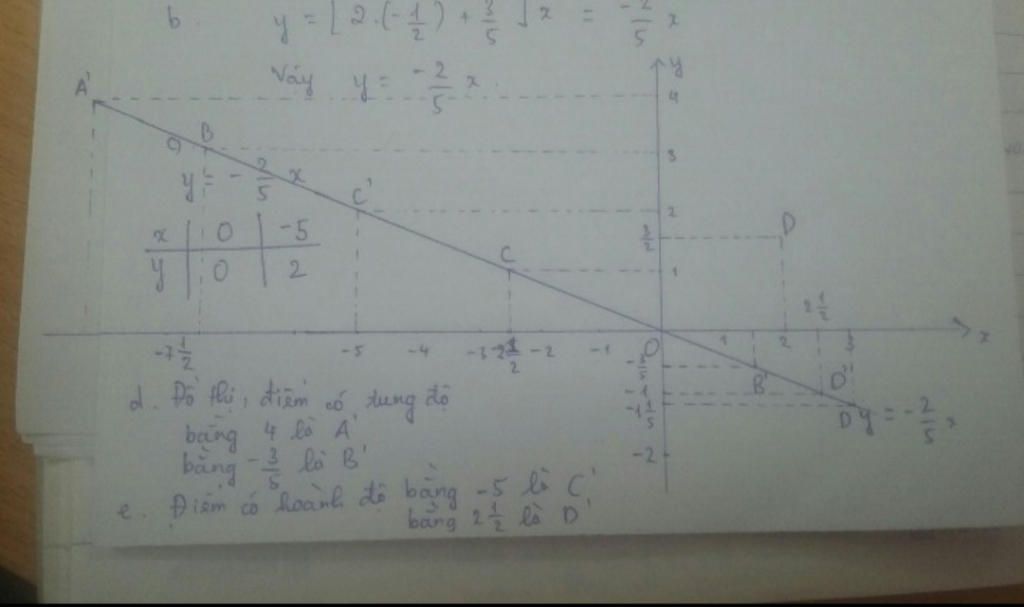 b. y = [ 2.(-1/2) + 3/5 ] x = -2/5 x
Vậy y = -2/5 x.
y
A'
4
B
3
y = -2/5 x
C'
2
x | 0 | -5
y | 0 | 2
3/2
D
C
1
2 1/2
-7 1/2 -5 -4 -3 -2 -1 O 1 2 3 x
-3/5
B'
D'
-1
-1 1/5
D
y = -2/5 x
-2
d. Đồ thị, điểm có tung độ
bằng 4 là A'
bằng -3/5 là B'
e. Điểm có hoành độ bằng -5 là C'
bằng 2 1/2 là D'